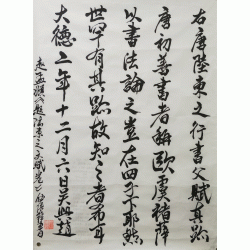 右唐陸柬之行書文賦真跡
唐初善書者稱歐虞褚薛
以書法論之豈在四子下耶然
世罕有其跡故知之者希耳
大德二年十二月六日吳興趙
趙孟頫題陸柬之文賦